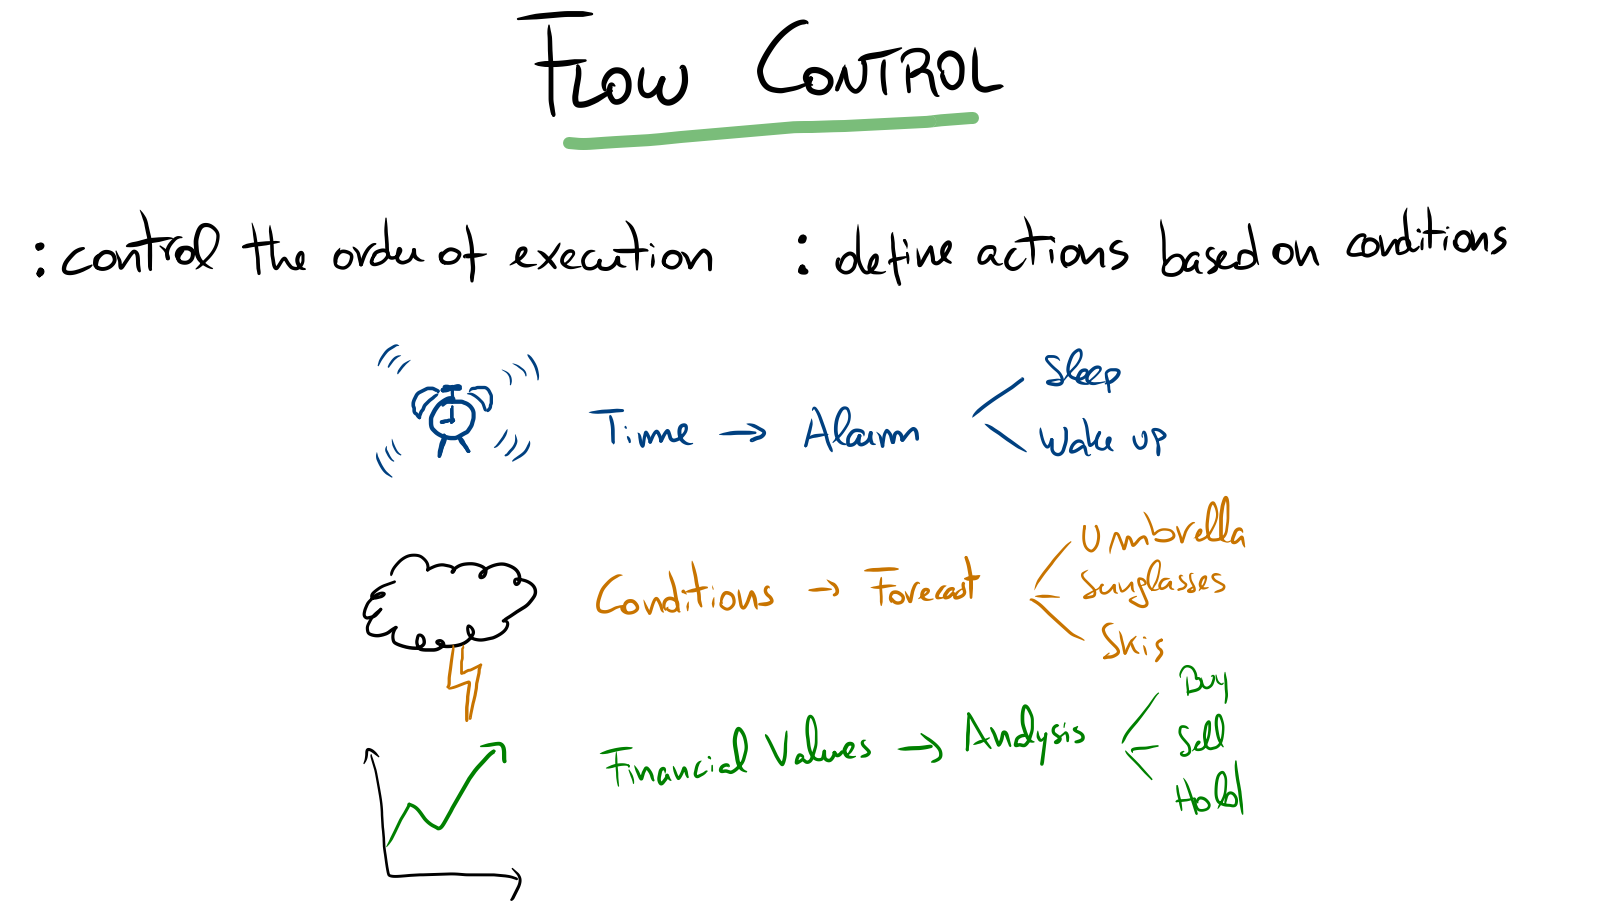 FLOW CONTROL
: control the order of execution : define actions based on conditions
Time → Alarm
Sleep
Wake up
Conditions → Forecast
Umbrella
Sunglasses
Skis
Financial Values → Analysis
Buy
Sell
Hold